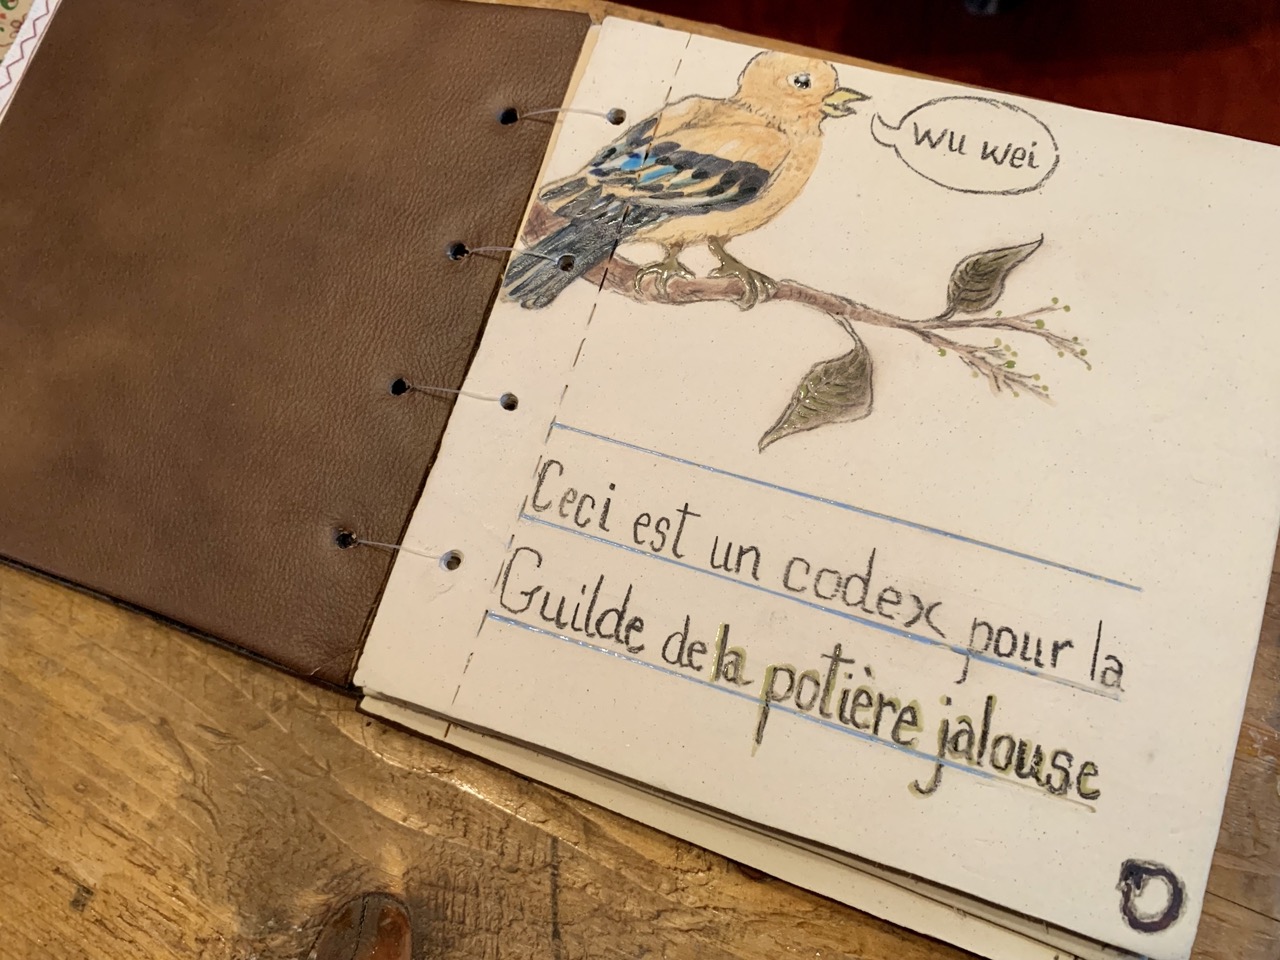 wu wei
Ceci est un codex pour la
Guilde de la potière jalouse
0